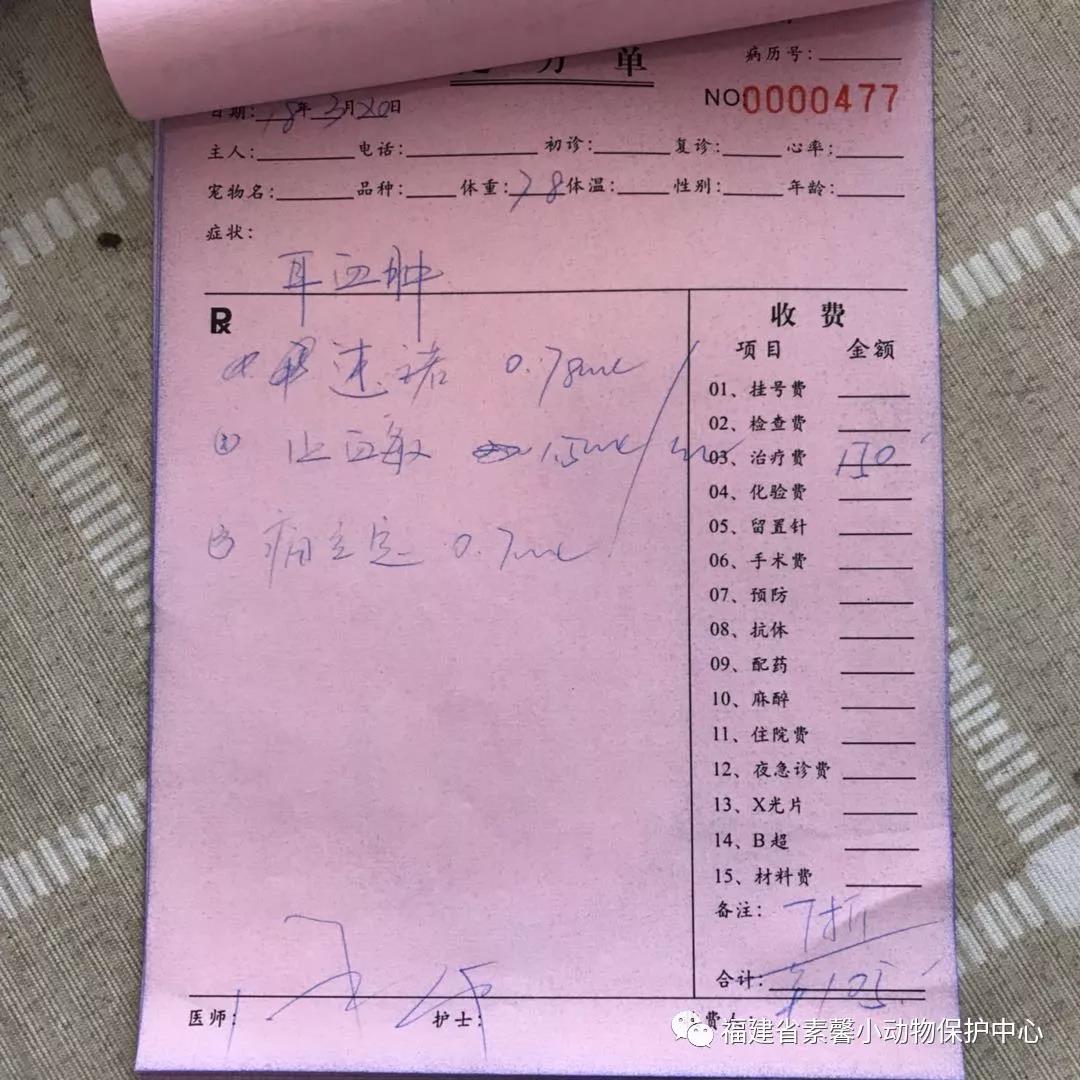 方 单
病历号:
NO:0000477
日期: 18年3月20日
主人: 电话: 初诊: 复诊: 心率:
宠物名: 品种: 体重: 7.8 体温: 性别: 年龄:
症状:
耳血肿
Rx
速诺 0.78ml
② 止血敏 1.5ml
③ 痛立定 0.7ml
收 费
项目 金额
01、挂号费
02、检查费
03、治疗费 150
04、化验费
05、留置针
06、手术费
07、预防
08、抗体
09、配药
10、麻醉
11、住院费
12、夜急诊费
13、X光片
14、B超
15、材料费
备注: 7折
合计: ¥105
医师: 护士: 费人:
福建省素馨小动物保护中心